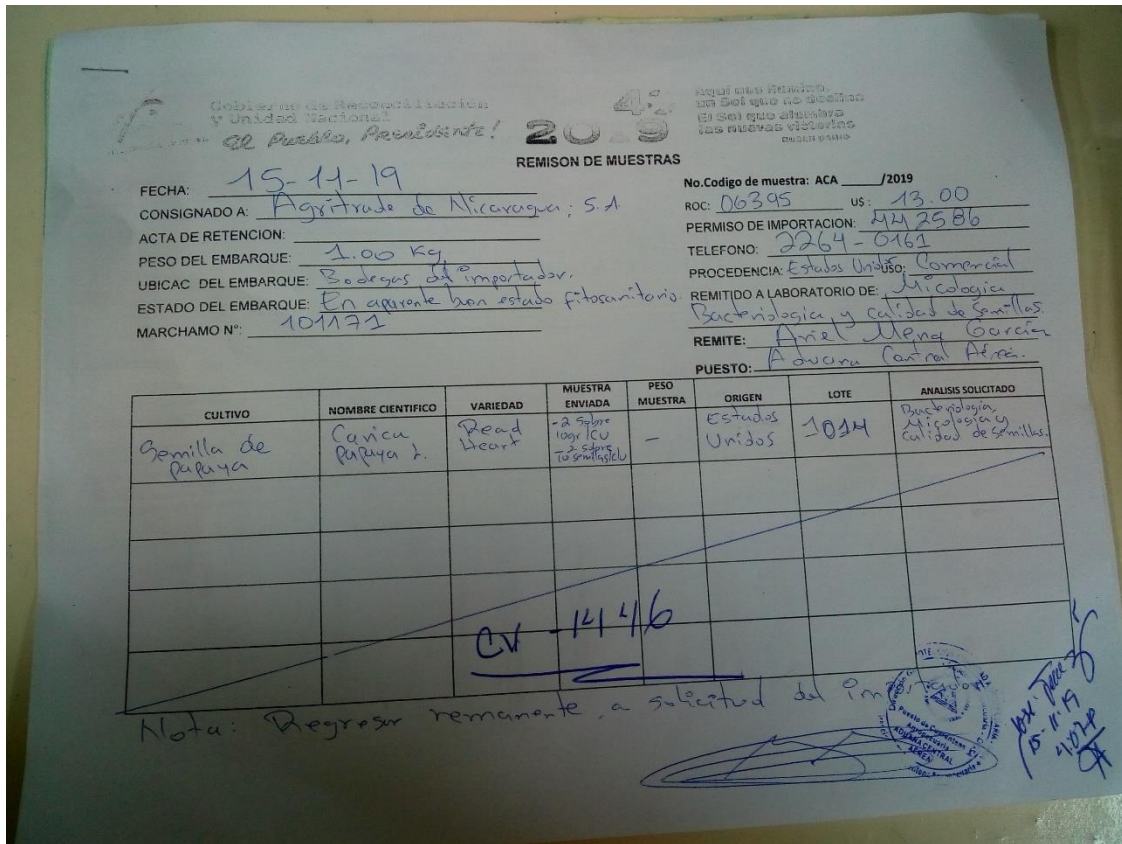 Gobierno de Reconciliación
y Unidad Nacional
El Pueblo, Presidente!
2019
Aquí nos Ilumina,
un Sol que no declina
El Sol que alumbra
las nuevas victorias
RUBEN DARIO
REMISON DE MUESTRAS
FECHA: 15-11-19
CONSIGNADO A: Agritrade de Nicaragua; S.A
ACTA DE RETENCION:
PESO DEL EMBARQUE: 1.00 Kg
UBICAC DEL EMBARQUE: Bodegas del importador.
ESTADO DEL EMBARQUE: En aparente buen estado fitosanitario.
MARCHAMO N°: 101171
No.Codigo de muestra: ACA ______/2019
ROC: 06395 U$: 13.00
PERMISO DE IMPORTACION: 442586
TELEFONO: 2264-0161
PROCEDENCIA: Estados Unidos USO: Comercial
REMITIDO A LABORATORIO DE: Micologia
Bacteriologia, y calidad de Semillas.
REMITE: Ariel Mena García
PUESTO: Aduana Central Aérea.
CULTIVO NOMBRE CIENTIFICO VARIEDAD MUESTRA ENVIADA PESO MUESTRA ORIGEN LOTE ANALISIS SOLICITADO
Semilla de papaya
Carica papaya L.
Read Heart
-2 Sobre 10gr/CU
-2 Sobre 10 semillas/c/u
-
Estados Unidos
1014
Bacteriologia, Micologia y calidad de Semillas.
CV-1446
Nota: Regresar remanente, a solicitud del
ADUANA CENTRAL
AEREA
José
15-11-19
4:02 p